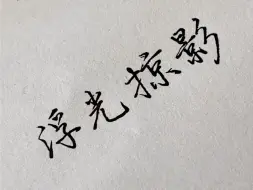 浮光掠影